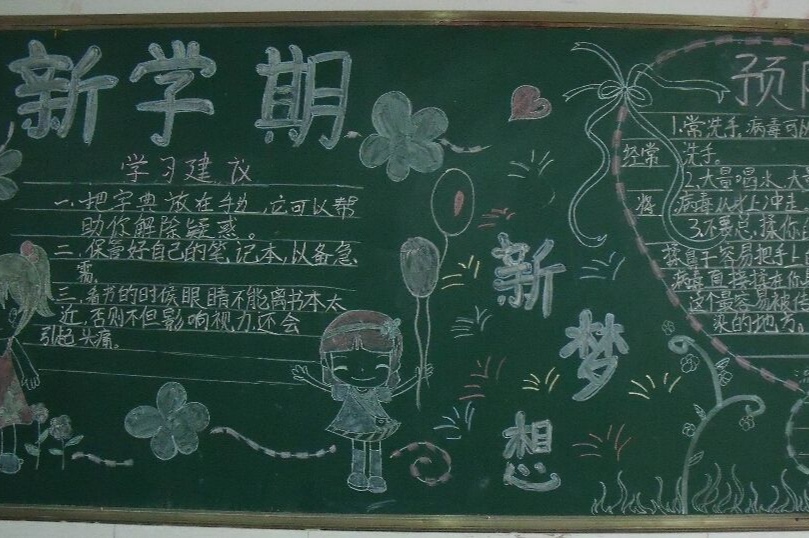 新学期
学习建议
一、把字典放在手边，它可以帮
助你解除疑惑。
二、保管好自己的笔记本，以备急
需。
三、看书的时候眼睛不能离书本太
近，否则不但影响视力，还会
引起头痛。
新
梦
想
预
1.常洗手，病毒可以
经常 洗手。
2.大量喝水，大量
病毒从水上冲走
3.不要总揉你的
揉鼻子容易把手上的
病毒直接揉在你
这个最容易被传
染的地方